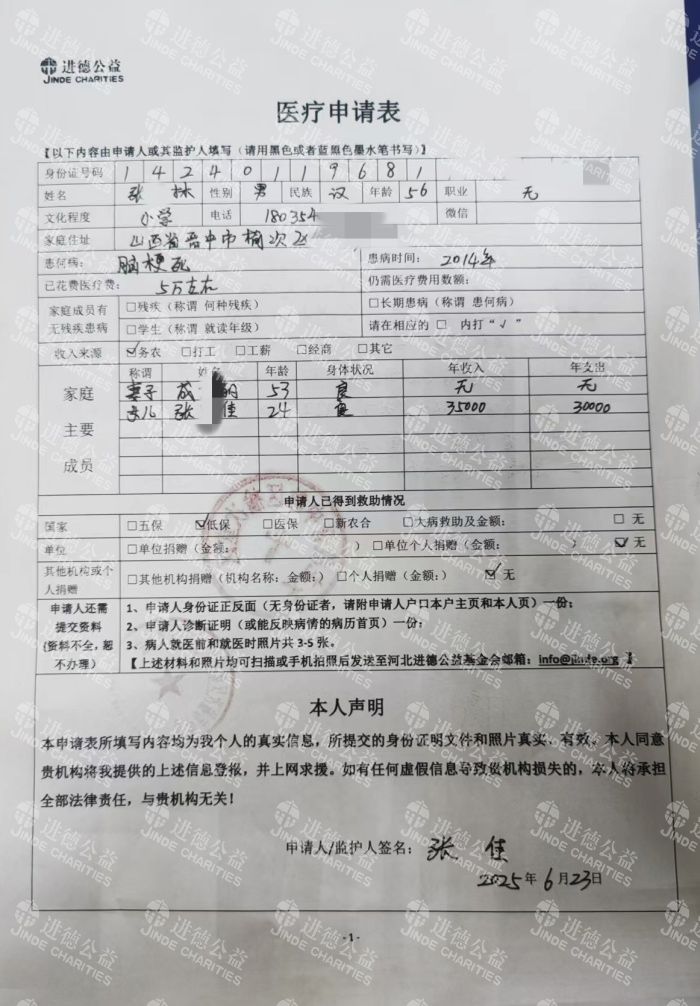 进德公益
JINDE CHARITIES
医疗申请表
【以下内容由申请人或其监护人填写（请用黑色或者蓝黑色墨水笔书写）】
身份证号码 1 4 2 4 0 1 1 9 6 8 1
姓名 张林 性别 男 民族 汉 年龄 56 职业 无
文化程度 小学 电话 180354 微信
家庭住址 山西省晋中市榆次区
患何病： 脑梗死 患病时间： 2014年
已花费医疗费： 5万左右 仍需医疗费用数额：
家庭成员有无残疾患病 □残疾（称谓 何种残疾） □长期患病（称谓 患何病）
□学生（称谓 就读年级） 请在相应的 □ 内打“√”
收入来源 ☑务农 □打工 □工薪 □经商 □其它
家庭主要成员 称谓 姓名 年龄 身体状况 年收入 年支出
妻子 成 53 良 无 无
女儿 张 佳 24 良 35000 30000
申请人已得到救助情况
国家 □五保 ☑低保 □医保 □新农合 □大病救助及金额： □ 无
单位 □单位捐赠（金额： ） □单位个人捐赠（金额： ） ☑ 无
其他机构或个人捐赠 □其他机构捐赠（机构名称： 金额：） □个人捐赠（金额：） ☑ 无
申请人还需提交资料（资料不全，恕不办理） 1、申请人身份证正反面（无身份证者，请附申请人户口本户主页和本人页）一份；
2、申请人诊断证明（或能反映病情的病历首页）一份；
3、病人就医前和就医时照片共 3-5 张。
【上述材料和照片均可扫描或手机拍照后发送至河北进德公益基金会邮箱：info@jinde.org 】
本人声明
本申请表所填写内容均为我个人的真实信息，所提交的身份证明文件和照片真实、有效。本人同意
贵机构将我提供的上述信息登报，并上网求援。如有任何虚假信息导致贵机构损失的，本人将承担
全部法律责任，与贵机构无关！
申请人/监护人签名： 张 佳
2025 年 6 月 23 日
- 1 -